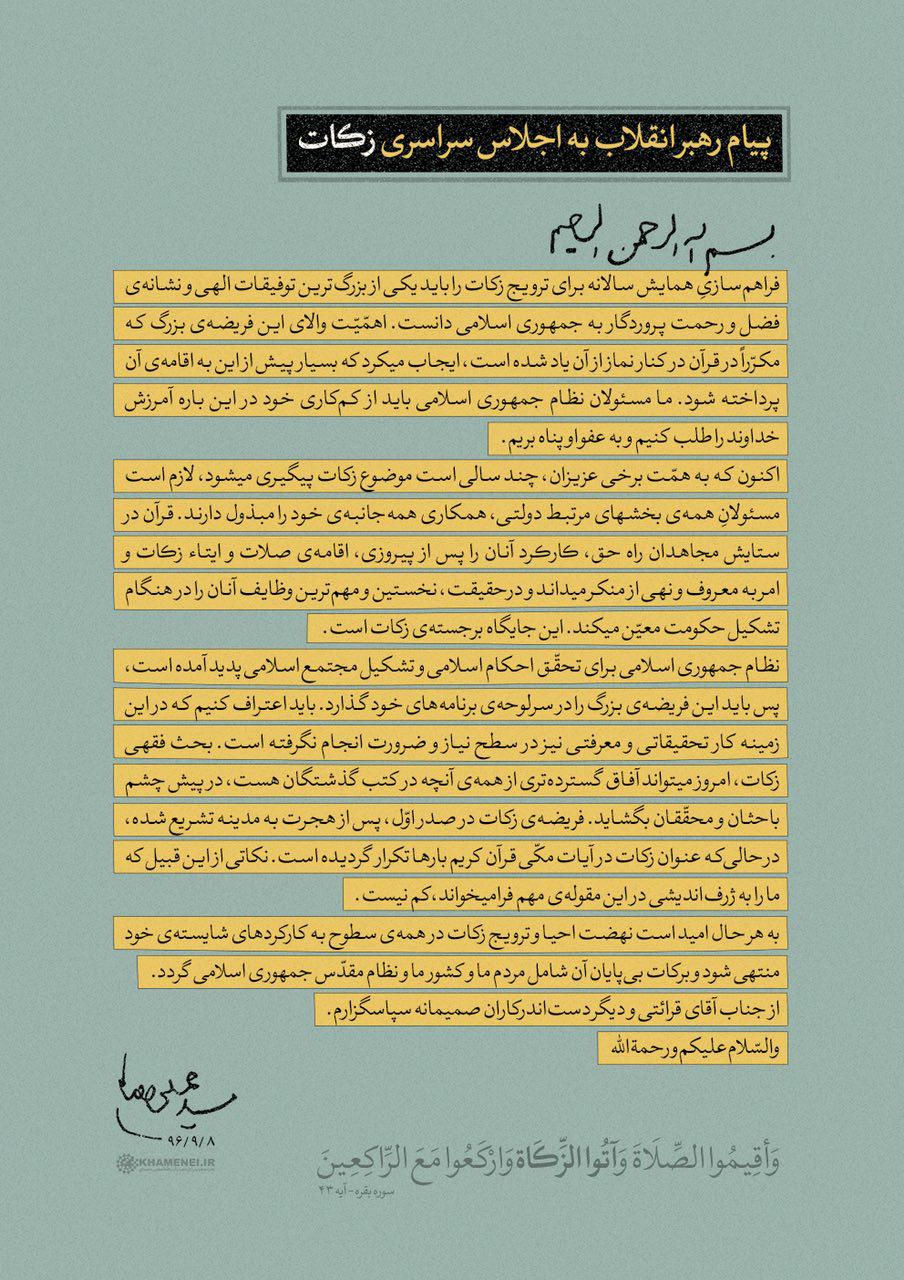 پیام رهبر انقلاب به اجلاس سراسری زکات
بسم الله الرحمن الرحیم
فراهم‌سازیِ همایش سالانه برای ترویج زکات را باید یکی از بزرگ‌ترین توفیقات الهی و نشانه‌ی
فضل و رحمت پروردگار به جمهوری اسلامی دانست. اهمّیّت والای این فریضه‌ی بزرگ که
مکرّراً در قرآن در کنار نماز از آن یاد شده است، ایجاب میکرد که بسیار پیش از این به اقامه‌ی آن
پرداخته شود. ما مسئولان نظام جمهوری اسلامی باید از کم‌کاری خود در این باره آمرزش
خداوند را طلب کنیم و به عفو او پناه بریم.
اکنون که به همّت برخی عزیزان، چند سالی است موضوع زکات پیگیری میشود، لازم است
مسئولانِ همه‌ی بخشهای مرتبط دولتی، همکاری همه‌جانبه‌ی خود را مبذول دارند. قرآن در
ستایش مجاهدان راه حق، کارکرد آنان را پس از پیروزی، اقامه‌ی صلات و ایتاء زکات و
امر به معروف و نهی از منکر میداند و درحقیقت، نخستین و مهم‌ترین وظایف آنان را در هنگام
تشکیل حکومت معیّن میکند. این جایگاه برجسته‌ی زکات است.
نظام جمهوری اسلامی برای تحقّق احکام اسلامی و تشکیل مجتمع اسلامی پدید آمده است،
پس باید این فریضه‌ی بزرگ را در سرلوحه‌ی برنامه‌های خود گذارد. باید اعتراف کنیم که در این
زمینه کار تحقیقاتی و معرفتی نیز در سطح نیاز و ضرورت انجام نگرفته است. بحث فقهی
زکات، امروز میتواند آفاق گسترده‌تری از همه‌ی آنچه در کتب گذشتگان هست، در پیش چشم
باحثان و محقّقان بگشاید. فریضه‌ی زکات در صدر اوّل، پس از هجرت به مدینه تشریع شده،
درحالی‌که عنوان زکات در آیات مکّی قرآن کریم بارها تکرار گردیده است. نکاتی از این قبیل که
ما را به ژرف‌اندیشی در این مقوله‌ی مهم فرامیخواند، کم نیست.
به هر حال امید است نهضت احیا و ترویج زکات در همه‌ی سطوح به کارکردهای شایسته‌ی خود
منتهی شود و برکات بی‌پایان آن شامل مردم ما و کشور ما و نظام مقدّس جمهوری اسلامی گردد.
از جناب آقای قرائتی و دیگر دست‌اندرکاران صمیمانه سپاسگزارم.
والسّلام علیکم و رحمة الله
۹۶/۹/۸
KHAMENEI.IR
وَأَقِيمُوا الصَّلَاةَ وَآتُوا الزَّكَاةَ وَارْكَعُوا مَعَ الرَّاكِعِينَ
سوره بقره - آیه ۴۳